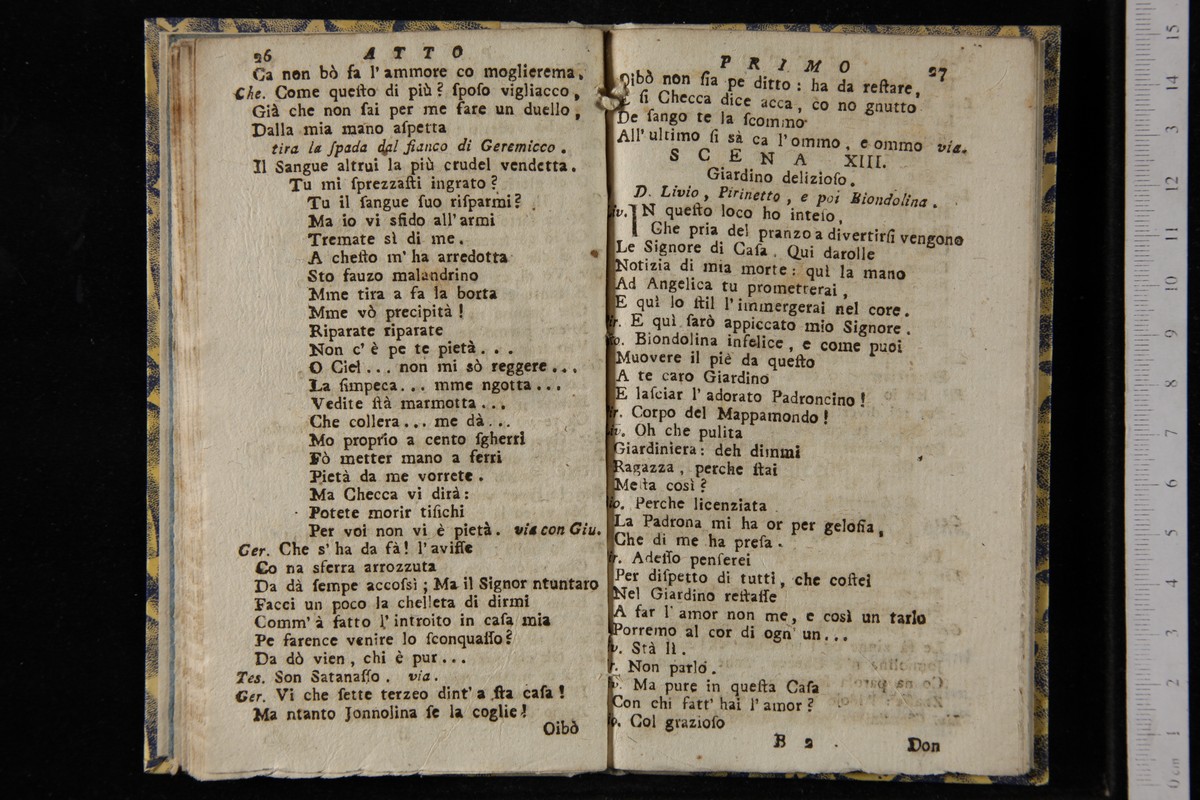 26 ATTO
Ca non bò fa l'ammore co moglierema.
Che. Come queſto di più? ſpoſo vigliacco,
Già che non ſai per me fare un duello,
Dalla mia mano aſpetta
tira la ſpada dal fianco di Geremicco.
Il Sangue altrui la più crudel vendetta.
Tu mi ſprezzaſti ingrato?
Tu il ſangue ſuo riſparmi?
Ma io vi sfido all'armi
Tremate sì di me.
A cheſto m'ha arredotta
Sto fauzo malandrino
Mme tira a fa la borta
Mme vò precipità!
Riparate riparate
Non c'è pe te pietà...
O Ciel... non mi sò reggere...
La ſimpeca... mme ngotta...
Vedite ſtà marmotta...
Che collera... me dà...
Mo proprio a cento ſgherri
Fò metter mano a ferri
Pietà da me vorrete.
Ma Checca vi dirà:
Potete morir tiſichi
Per voi non vi è pietà. via con Giu.
Ger. Che s'ha da fà! l'aviſſe
Co na sferra arrozzuta
Da dà ſempe accoſsì; Ma il Signor ntuntaro
Facci un poco la chelleta di dirmi
Comm'à fatto l'introito in caſa mia
Pe farence venire lo ſconquaſſo?
Da dò vien, chi è pur...
Tes. Son Satanaſſo. via.
Ger. Vi che ſette terzeo dint'a ſta caſa!
Ma ntanto Jonnolina ſe la coglie!
Oibò
PRIMO 27
Oibò non ſia pe ditto: ha da reſtare,
ſi Checca dice acca, co no gnutto
De ſango te la ſcommo
All'ultimo ſi sà ca l'ommo, e ommo via.
SCENA XIII.
Giardino delizioſo.
D. Livio, Pirinetto, e poi Biondolina.
Liv. IN queſto loco ho inteſo,
Che pria del pranzo a divertirſi vengono
Le Signore di Caſa. Qui darolle
Notizia di mia morte: quì la mano
Ad Angelica tu prometterai,
E quì lo ſtil l'immergerai nel core.
ir. E quì ſarò appiccato mio Signore.
io. Biondolina infelice, e come puoi
Muovere il piè da queſto
A te caro Giardino
E laſciar l'adorato Padroncino!
ir. Corpo del Mappamondo!
iv. Oh che pulita
Giardiniera: deh dimmi
Ragazza, perche ſtai
Meſta così?
io. Perche licenziata
La Padrona mi ha or per geloſia,
Che di me ha preſa.
ir. Adeſſo penſerei
Per diſpetto di tutti, che coſtei
Nel Giardino reſtaſſe
A far l'amor non me, e così un tarlo
Porremo al cor di ogn'un...
v. Stà lì.
r. Non parlo.
v. Ma pure in queſta Caſa
Con chi fatt'hai l'amor?
o. Col grazioſo
B 2 .
Don